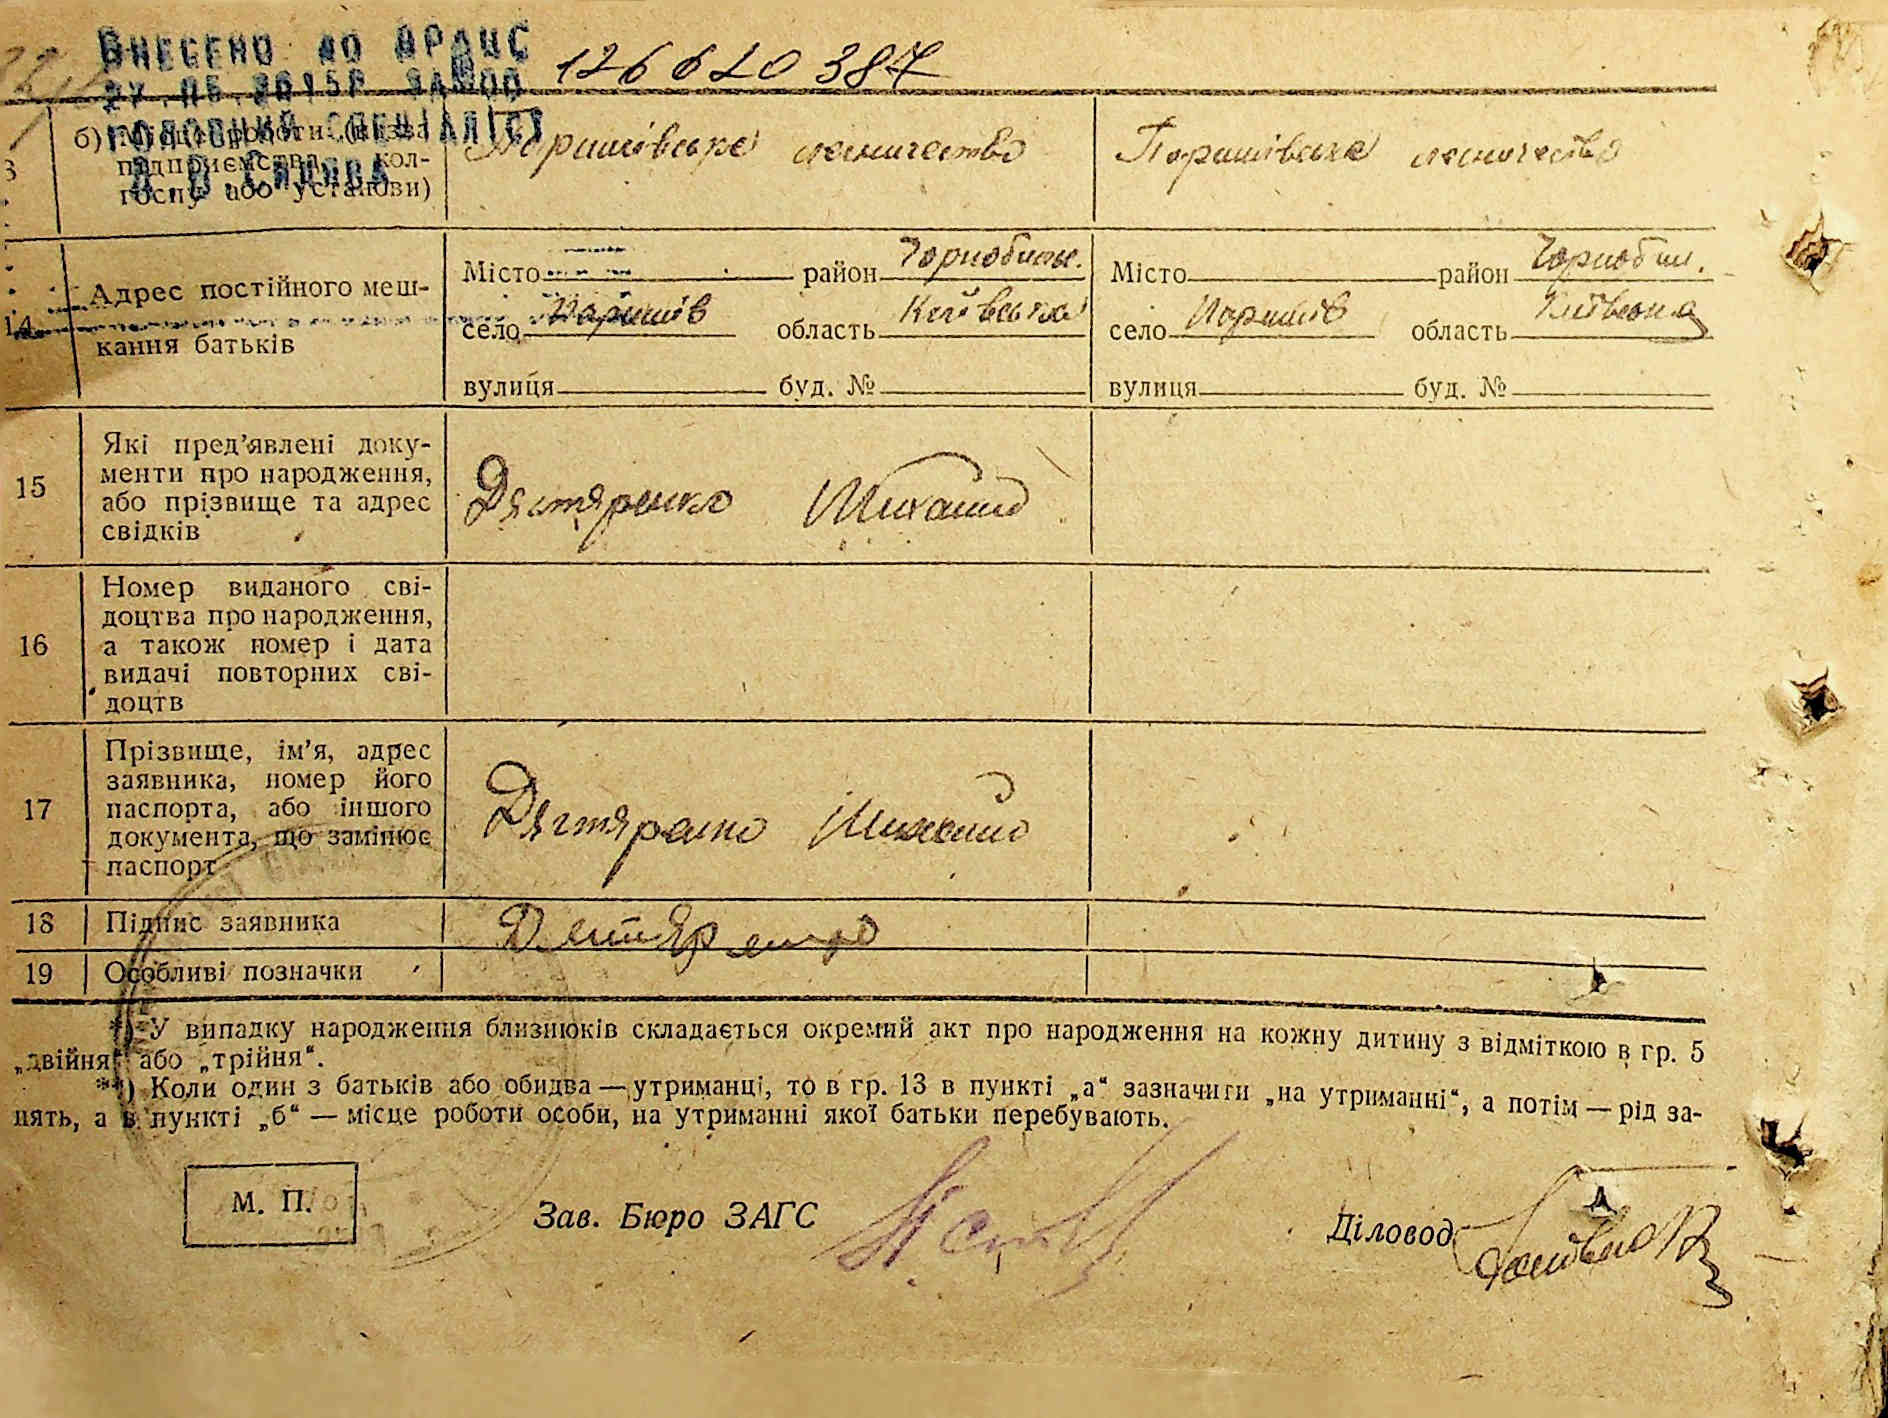 ВНЕСЕНО ДО ДРАЦС
126620387
ГОЛОВНИЙ СПЕЦІАЛІСТ
б) Місце роботи (назва підприємства, кол-
госпу або установи)
Паришівське лесничество
Паришівське лесничество
14
Адрес постійного меш-
кання батьків
Місто район Чорнобильс.
село Паришів область Київська
вулиця буд. №
Місто район Чорнобил.
село Паришів область Київська
вулиця буд. №
15
Які пред'явлені доку-
менти про народження,
або прізвище та адрес
свідків
Дегтяренко Михаил
16
Номер виданого сві-
доцтва про народження,
а також номер і дата
видачі повторних сві-
доцтв
17
Прізвище, ім'я, адрес
заявника, номер його
паспорта, або іншого
документа, що замінює
паспорт
Дегтяренко Михаил
18
Підпис заявника
Дегтяренко
19
Особливі позначки
*) У випадку народження близнюків складається окремий акт про народження на кожну дитину з відміткою в гр. 5
„двійня“ або „трійня“.
**) Коли один з батьків або обидва — утриманці, то в гр. 13 в пункті „а“ зазначити „на утриманні“, а потім — рід за-
нять, а в пункті „б“ — місце роботи особи, на утриманні якої батьки перебувають.
М. П.
Зав. Бюро ЗАГС
Діловод